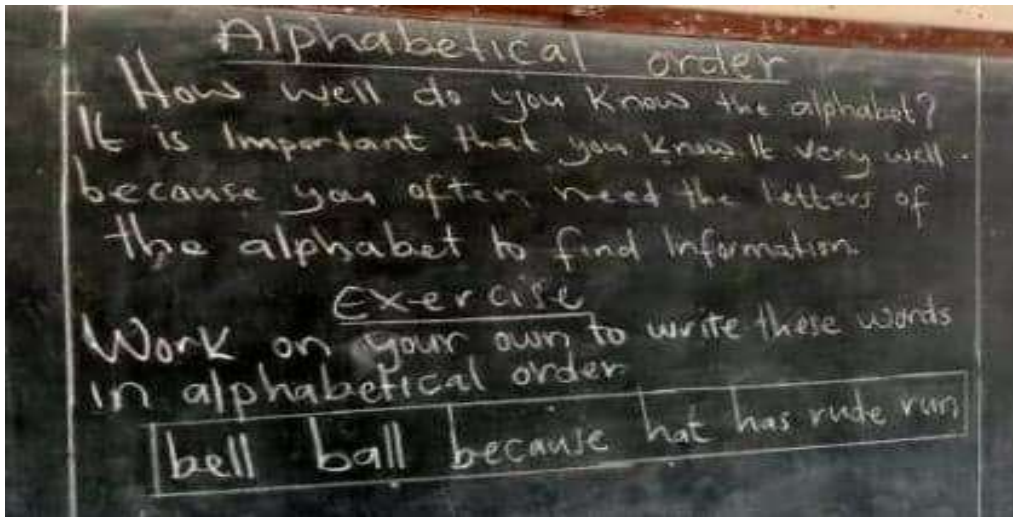 Alphabetical order
How well do you know the alphabet?
It is Important that you know It very well.
because you often need the letters of
the alphabet to find Information.
Exercise
Work on your own to write these words
in alphabetical order
bell ball because hat has rude run